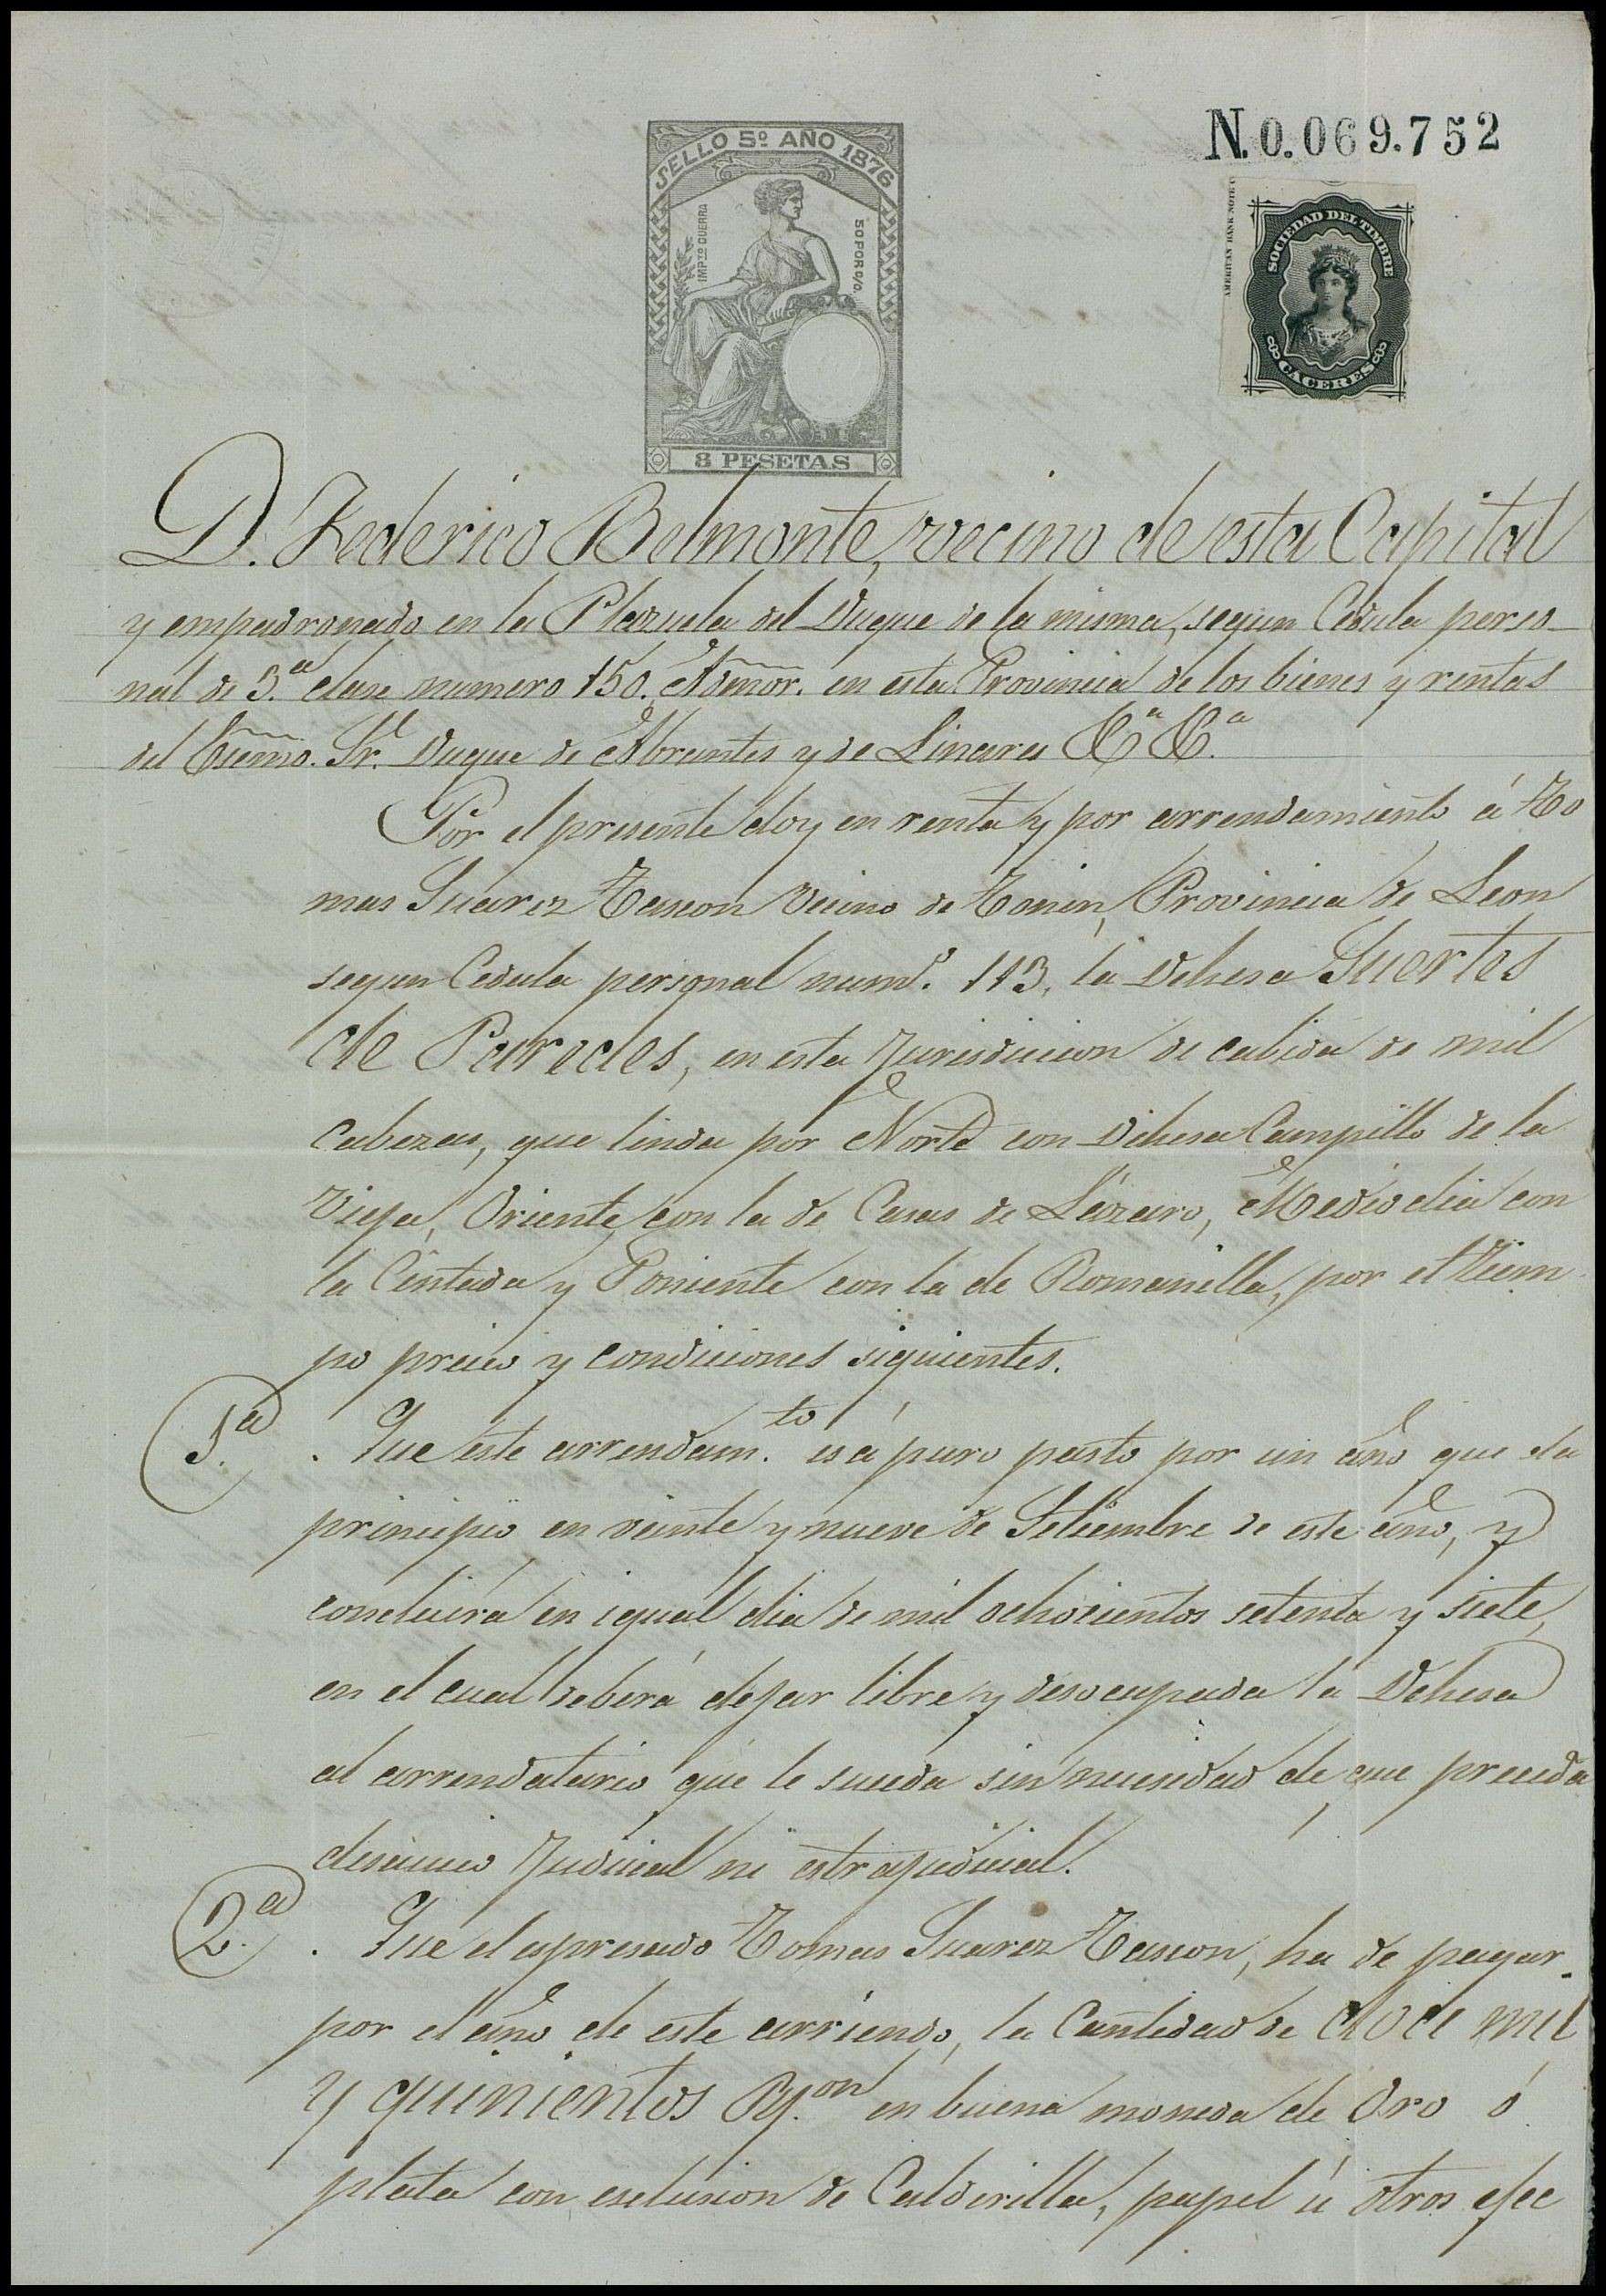 N.0.069.752
SELLO 5º AÑO 1876
IMPTO GUERRA
50 POR 0/0.
8 PESETAS
AMERICAN BANK NOTE C
SOCIEDAD DEL TIMBRE
CACERES
D. Federico Belmonte, vecino de esta Capital
y empadronado en la Plazuela del Duque de la misma, segun Cedula perso-
nal de 3.ª clase numero 150. Admor. en esta Provincia de los bienes y rentas
del Excmo. Sr. Duque de Abrantes y de Linares &ª &ª.
Por el presente doy en renta y por arrendamiento á To
mas Suarez Tascon vecino de Tonin, Provincia de Leon
segun Cedula personal num.º 113, la Dehesa Suertes
de Paredes, en esta Jurisdiccion de cabida de mil
cabezas, que linda por Norte con Dehesa Campillo de la
Vieja, Oriente, con la de Casas de Lázaro, Mediodia con
la Cintada y Poniente con la de Romanilla, por el tiem
po precio y condiciones siguientes.
1.ª. Que este arrendam.to es á puro pasto por un año que da
principio en veinte y nueve de Setiembre de este año, y
concluirá en igual dia de mil ochocientos setenta y siete,
en el cual deberá dejar libre y desocupada la Dehesa
al arrendatario que le suceda sin necesidad de que preceda
desaucio Judicial ni estrajudicial.
2.ª. Que el espresado Tomas Suarez Tascon, ha de pagar
por el año de este arriendo, la Cantidad de doce mil
y quinientos Rs.on en buena moneda de Oro ó
plata con esclusion de Calderilla, papel ú otros efec